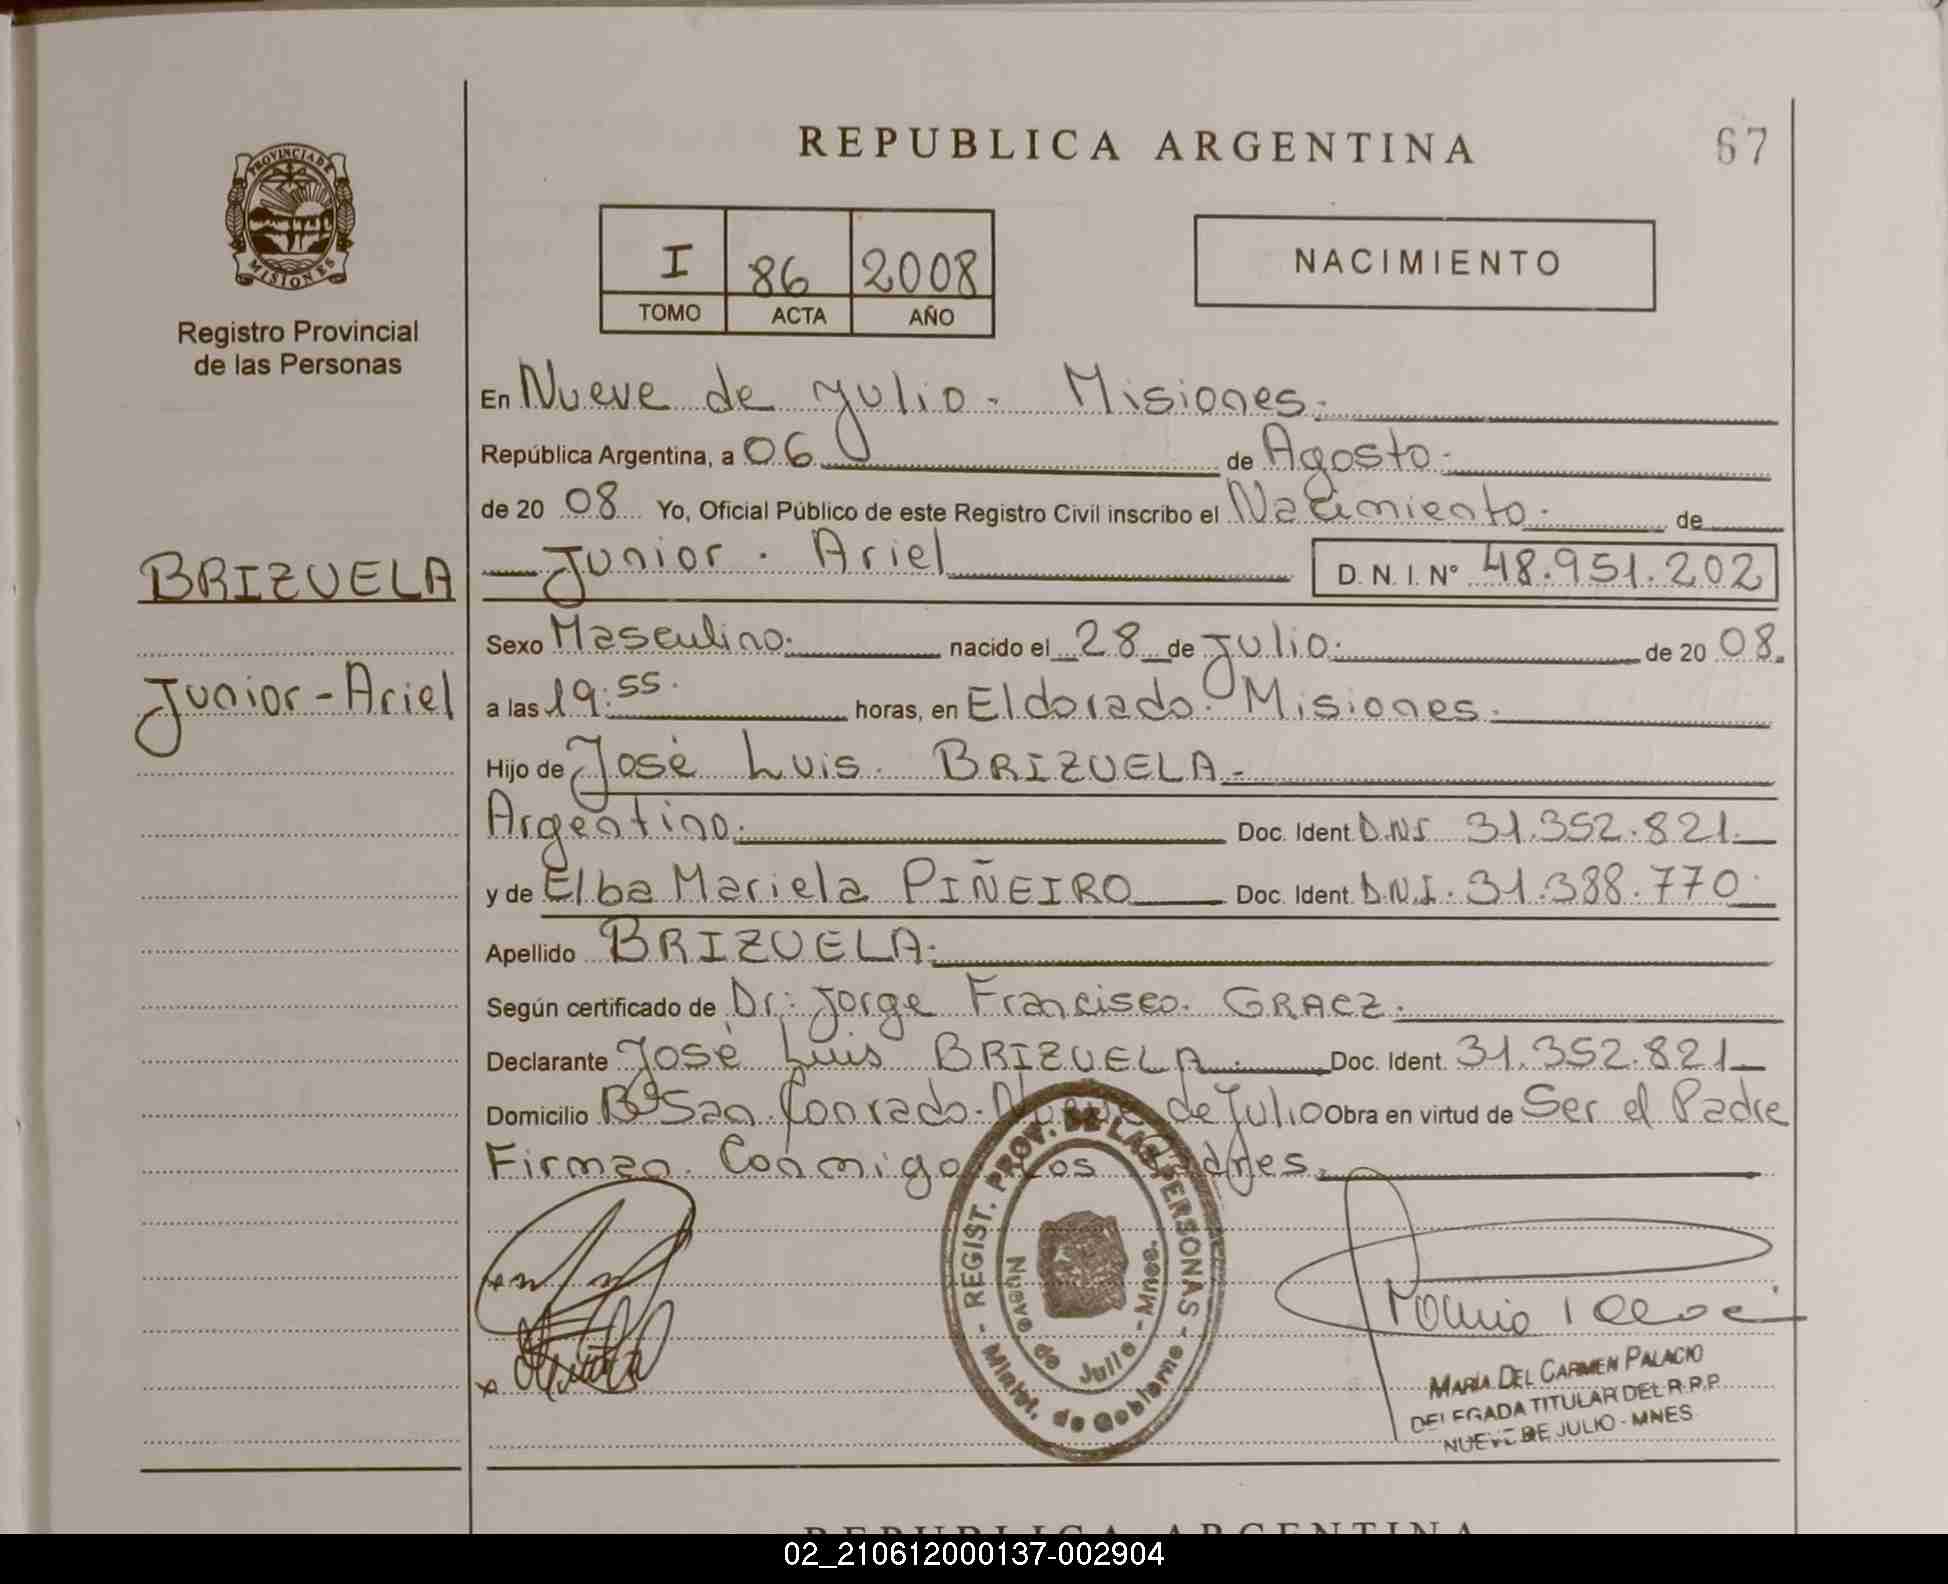 REPUBLICA ARGENTINA
67
PROVINCIA DE
MISIONES
Registro Provincial
de las Personas
I 86 2008
TOMO ACTA AÑO
NACIMIENTO
En Nueve de Julio - Misiones.
República Argentina, a 06 de Agosto.
de 2008 Yo, Oficial Público de este Registro Civil inscribo el Nacimiento. de
BRIZUELA
Junior-Ariel
Junior. Ariel D.N.I. N° 48.951.202
Sexo Masculino. nacido el 28 de Julio. de 2008.
a las 19:55. horas, en Eldorado. Misiones.
Hijo de José Luis. BRIZUELA.
Argentino. Doc. Ident. D.N.I 31.352.821.
y de Elba Mariela PIÑEIRO Doc. Ident. D.N.I. 31.388.770.
Apellido BRIZUELA.
Según certificado de Dr. Jorge Francisco. GRAEZ.
Declarante José Luis BRIZUELA. Doc. Ident. 31.352.821
Domicilio B° San Conrado. Nueve de Julio Obra en virtud de Ser el Padre
Firman. Conmigo Los Padres.
- REGIST. PROV. DE LAS PERSONAS -
Minist. de Gobierno
Nueve de Julio - Mnes.
MARÍA DEL CARMEN PALACIO
DELEGADA TITULAR DEL R.P.P.
NUEVE DE JULIO - MNES
REPUBLICA ARGENTINA
02_210612000137-002904